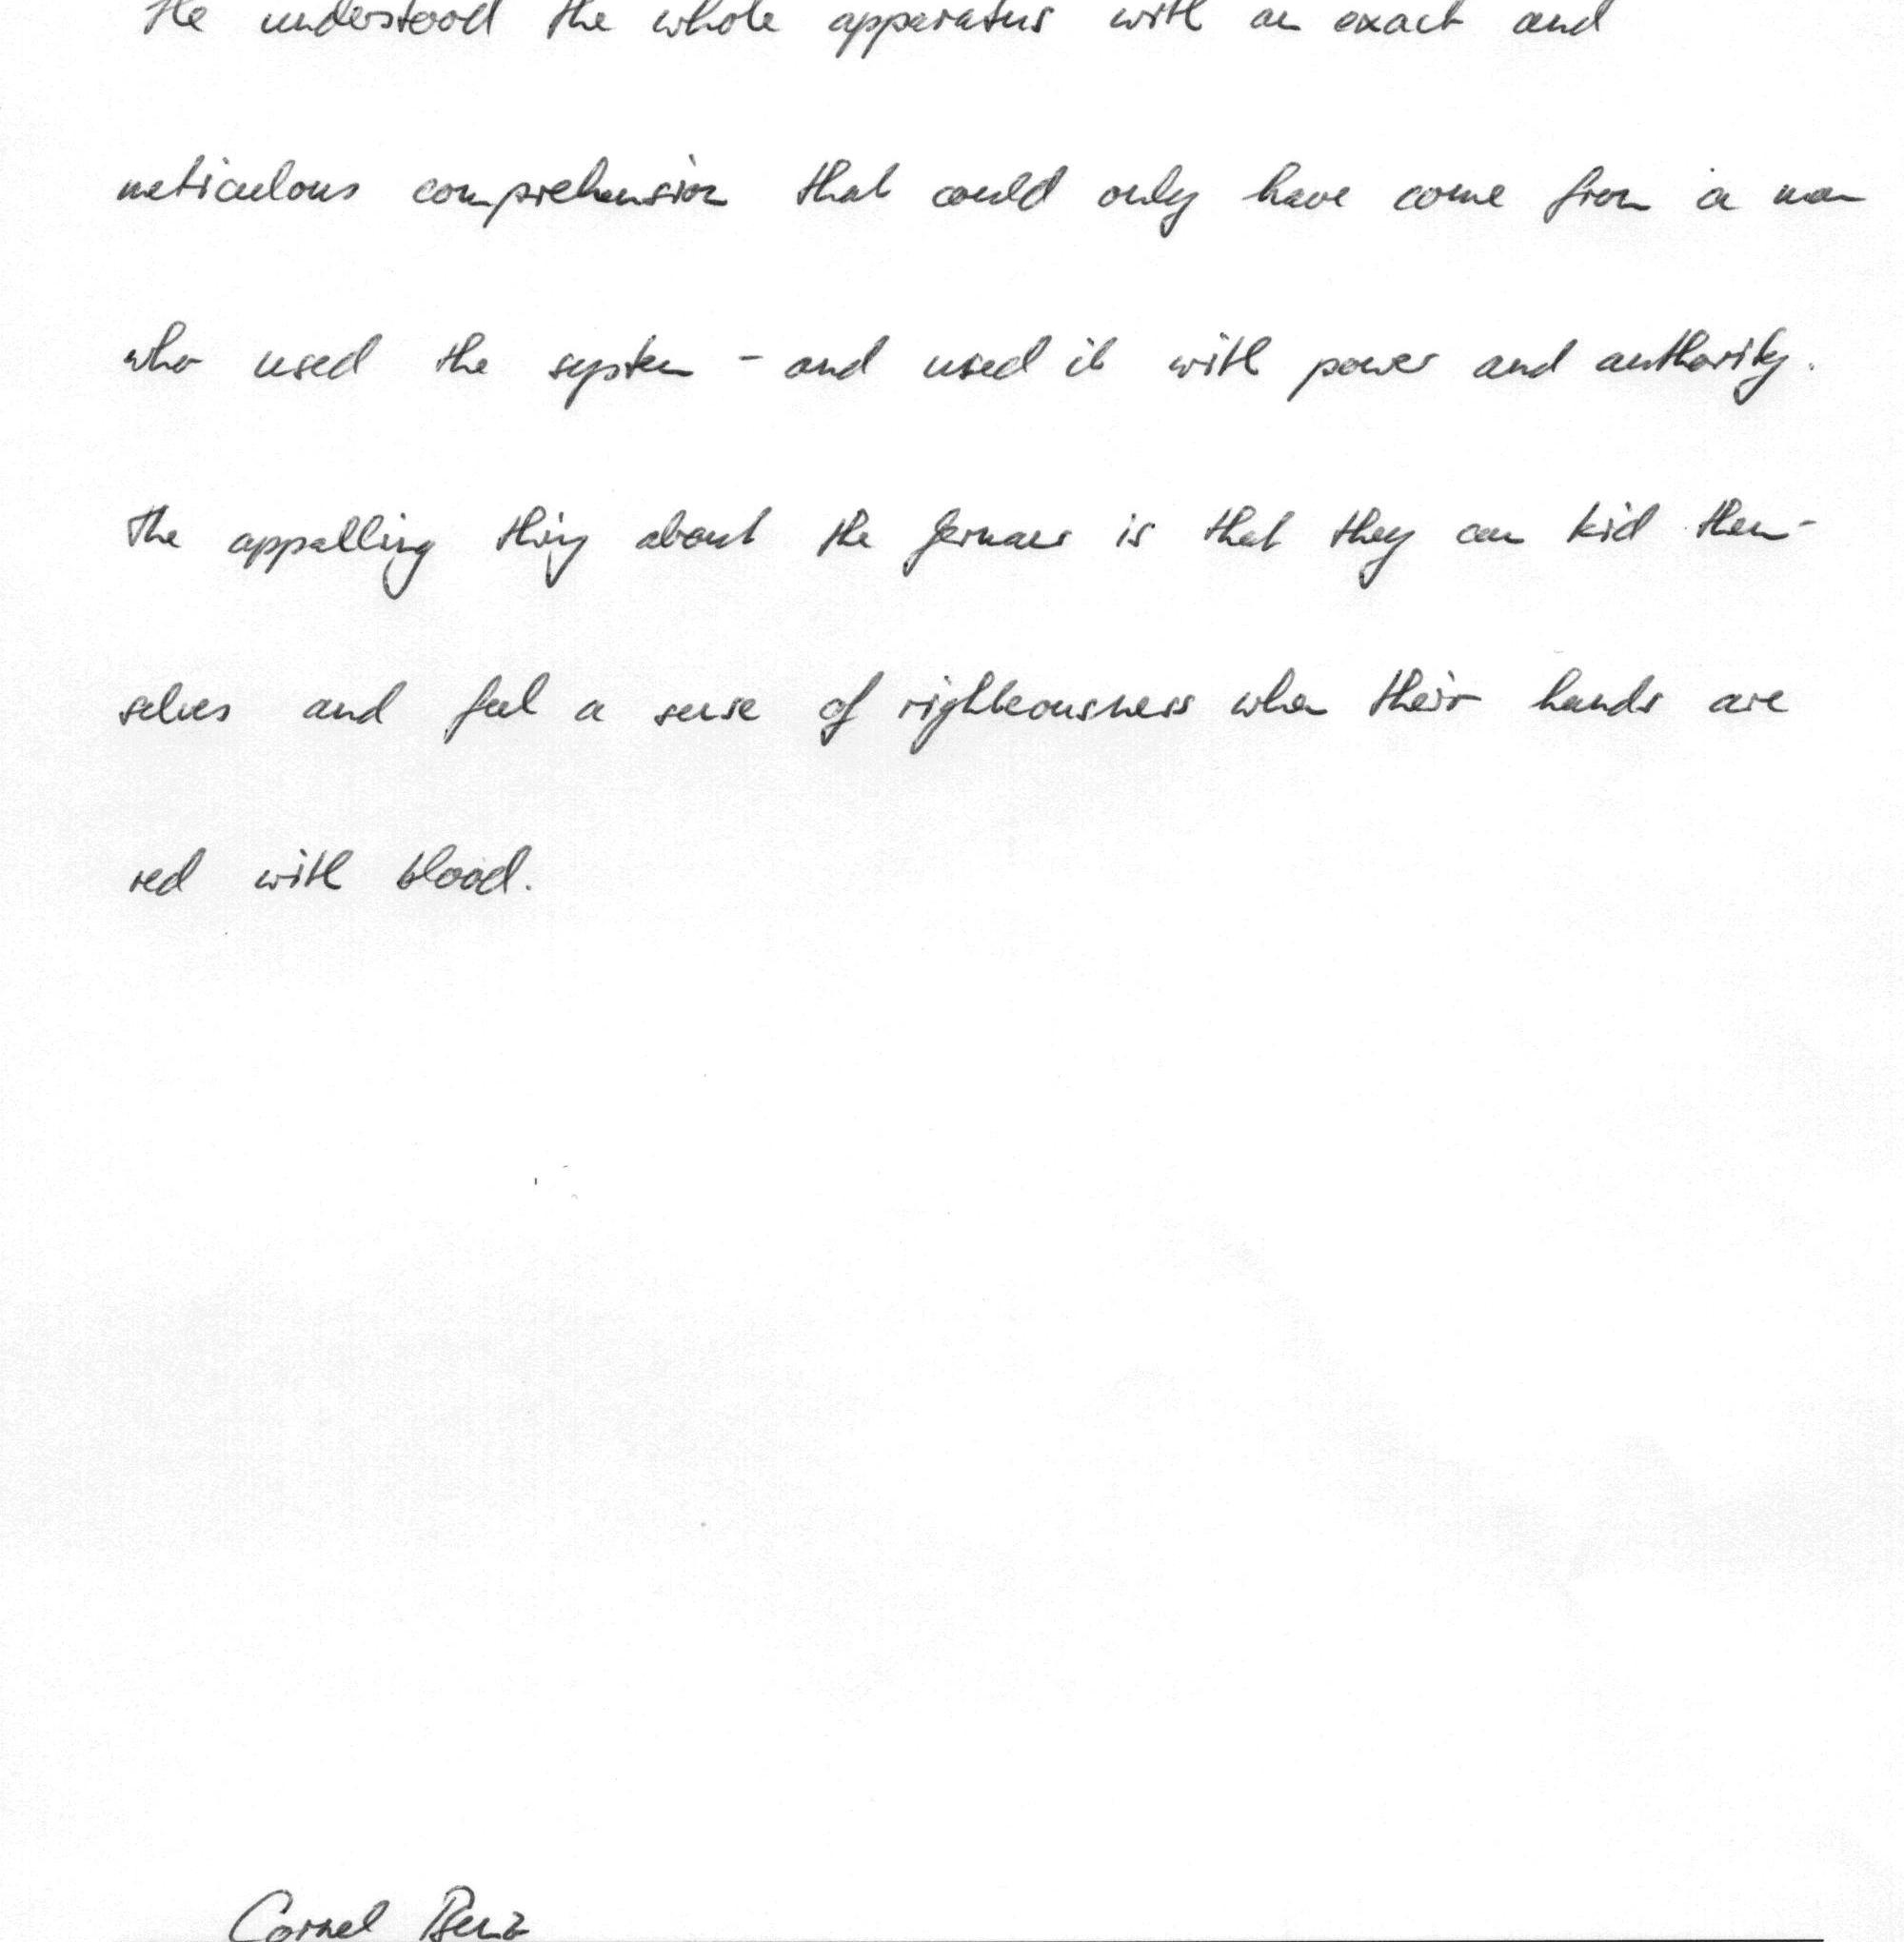 He understood the whole apparatus with an exact and
meticulous comprehension that could only have come from a man
who used the system - and used it with power and authority.
The appalling thing about the Germans is that they can kid them-
selves and feel a sense of righteousness when their hands are
red with blood.
Cornel Benz